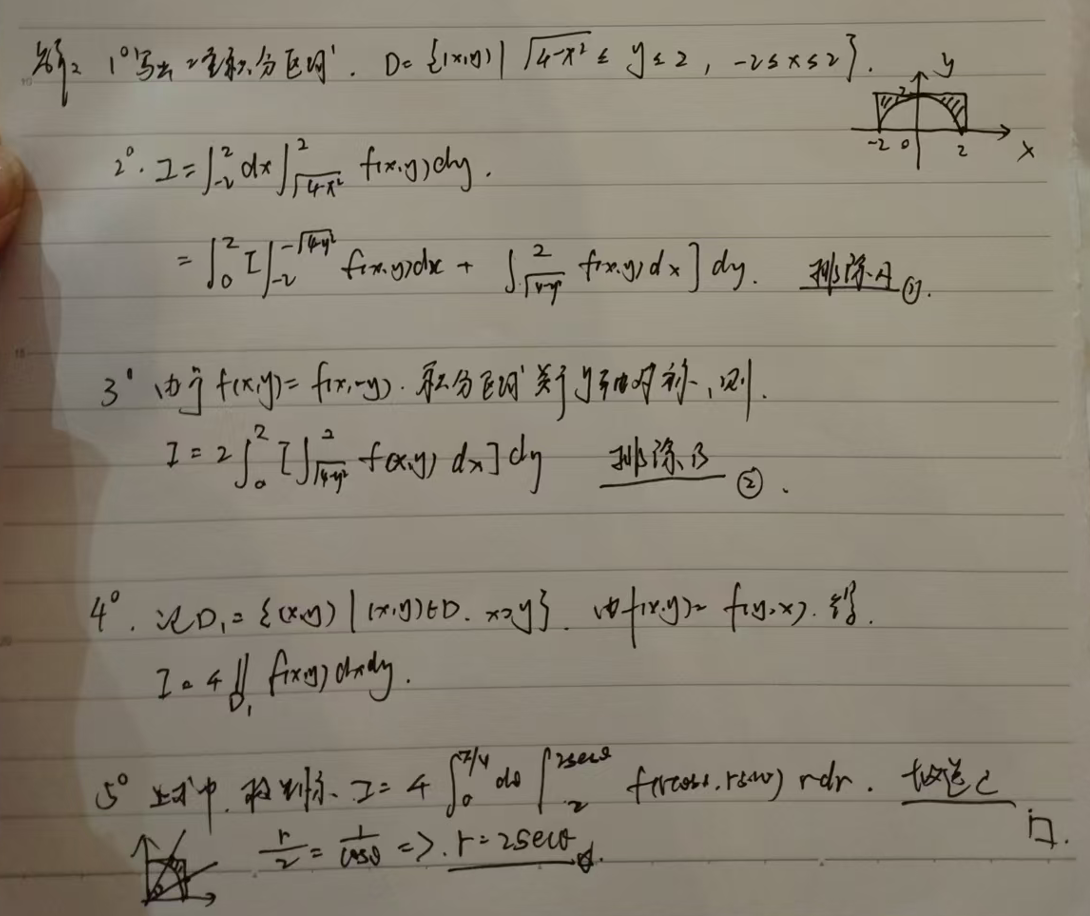 解: 1° 写出二重积分区域. D= {(x,y)| √(4-x²) ≤ y ≤ 2, -2≤x≤2}.
y
2
-2 0 2 x
2°. I=∫_{-2}^{2} dx ∫_{√(4-x²)}^{2} f(x,y)dy.
= ∫_0^2 [∫_{-2}^{-√(4-y²)} f(x,y)dx + ∫_{√(4-y²)}^{2} f(x,y)dx] dy. 排除A ①.
3° 由于 f(x,y)= f(x,-y). 积分区域关于y轴对称, 则.
I = 2∫_0^2 [∫_{√(4-y²)}^{2} f(x,y) dx] dy 排除B ②.
4°. 记D₁= {(x,y) | (x,y)∈D. x>y}. 由f(x,y)= f(y,x). 得.
I = 4∬_{D₁} f(x,y)dxdy.
5° 上式中, I= 4∫_0^{π/4} dθ ∫_2^{2secθ} f(rcosθ, rsinθ) rdr. 故选C □.
r/2 = 1/cosθ => r=2secθ